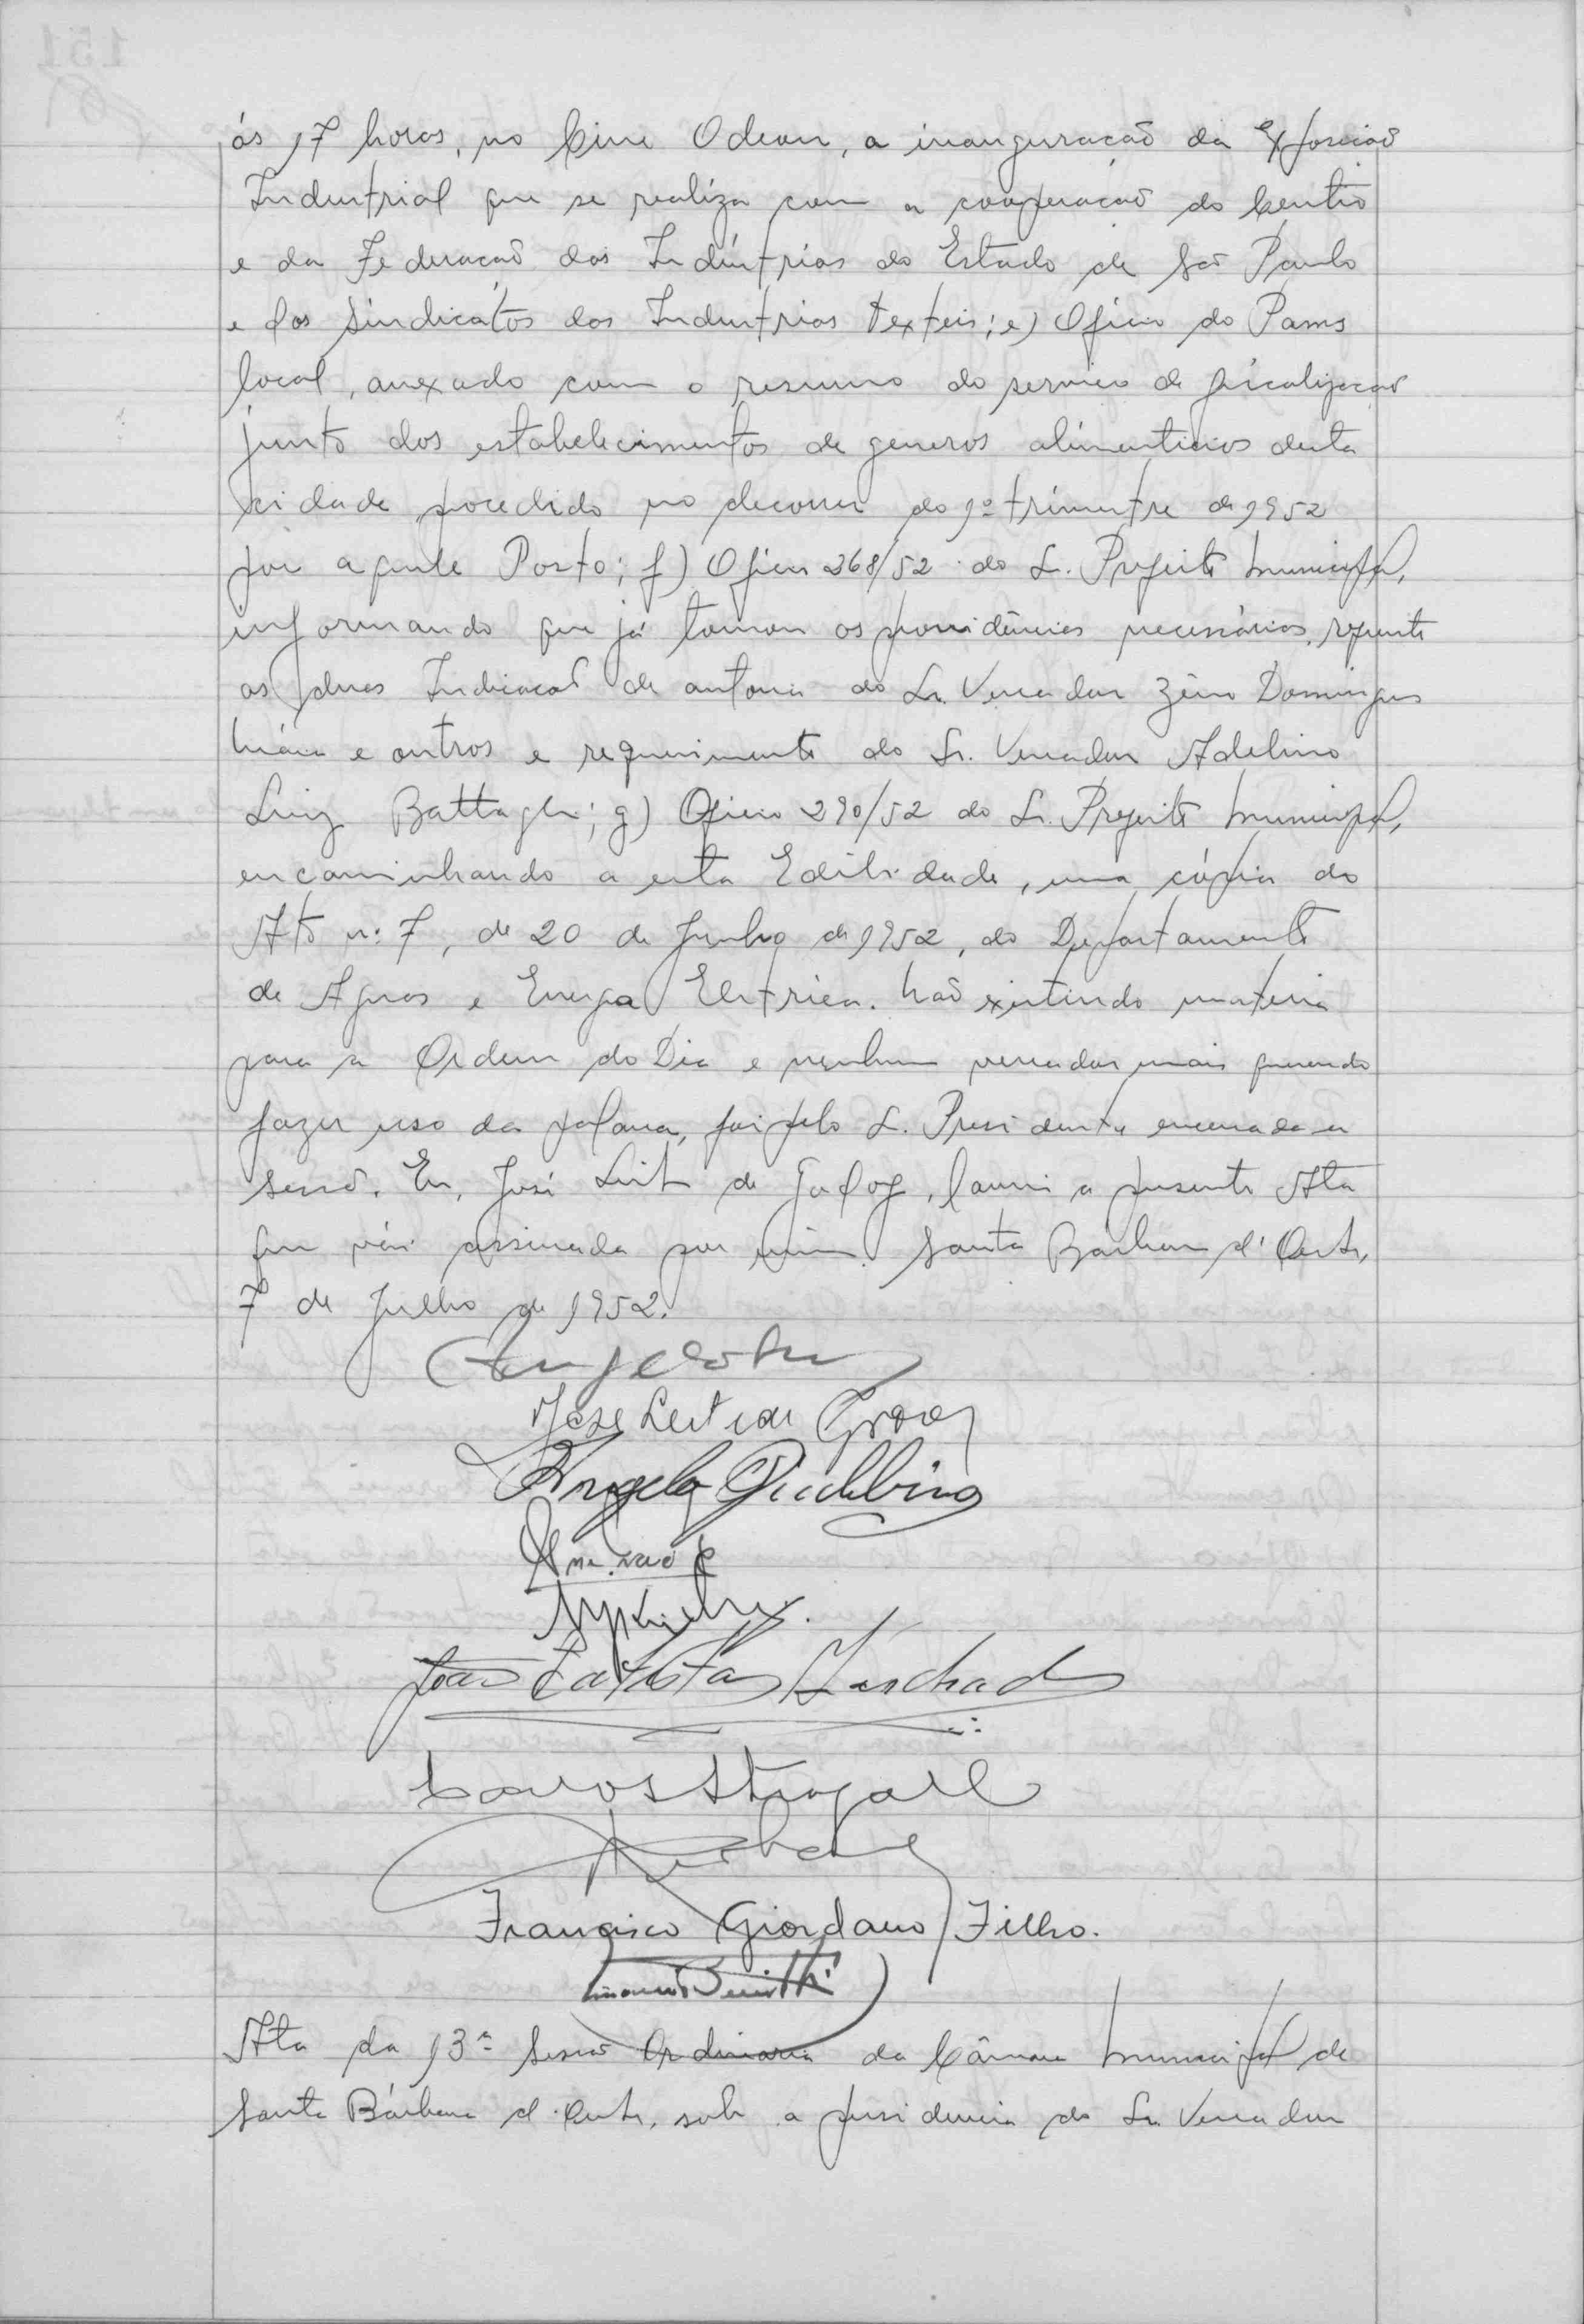 ás 17 horas, no Cine Odeon, a inauguração da Exposição
Industrial que se realiza com a cooperação do Centro
e da Federação das Indústrias do Estado de São Paulo
e dos Sindicatos das Industrias Texteis; e) Oficio do Pams
local, anexado com o resumo do serviço de fiscalização
junto dos estabelecimentos de generos alimenticios desta
cidade procedido no decorrer do 1º trimestre de 1952
por agente Porto; f) Oficio 268/52 do Sr. Prefeito Municipal,
informando que já tomou as providências necessárias, referente
as duas Indicação de autoria do Sr. Vereador Zêno Domingues
Maia e outros e requerimento do Sr. Vereador Adelino
Luiz Battagin; g) Oficio 290/52 do Sr. Prefeito Municipal,
encaminhando a esta Edilidade, uma cópia do
Ato nº 7, de 20 de Junho de 1952, do Departamento
de Aguas e Energia Eletrica. Não existindo materia
para a Ordem do Dia e nenhum vereador mais querendo
fazer uso da palavra, foi pelo Sr. Presidente encerrada a
sessão. Eu, José Leite de Godoy, lavrei a presente Ata
que vai assinada por mim. Santa Bárbara d'Oeste,
7 de Julho de 1952.
José Leite de Godoy
Angelo Giubbina
João Batista Machado
Carlos Steagall
Francisco Giordano Filho.
Ata da 13ª Sessão Ordinaria da Câmara Municipal de
Santa Bárbara d'Oeste, sob a presidencia do Sr. Vereador